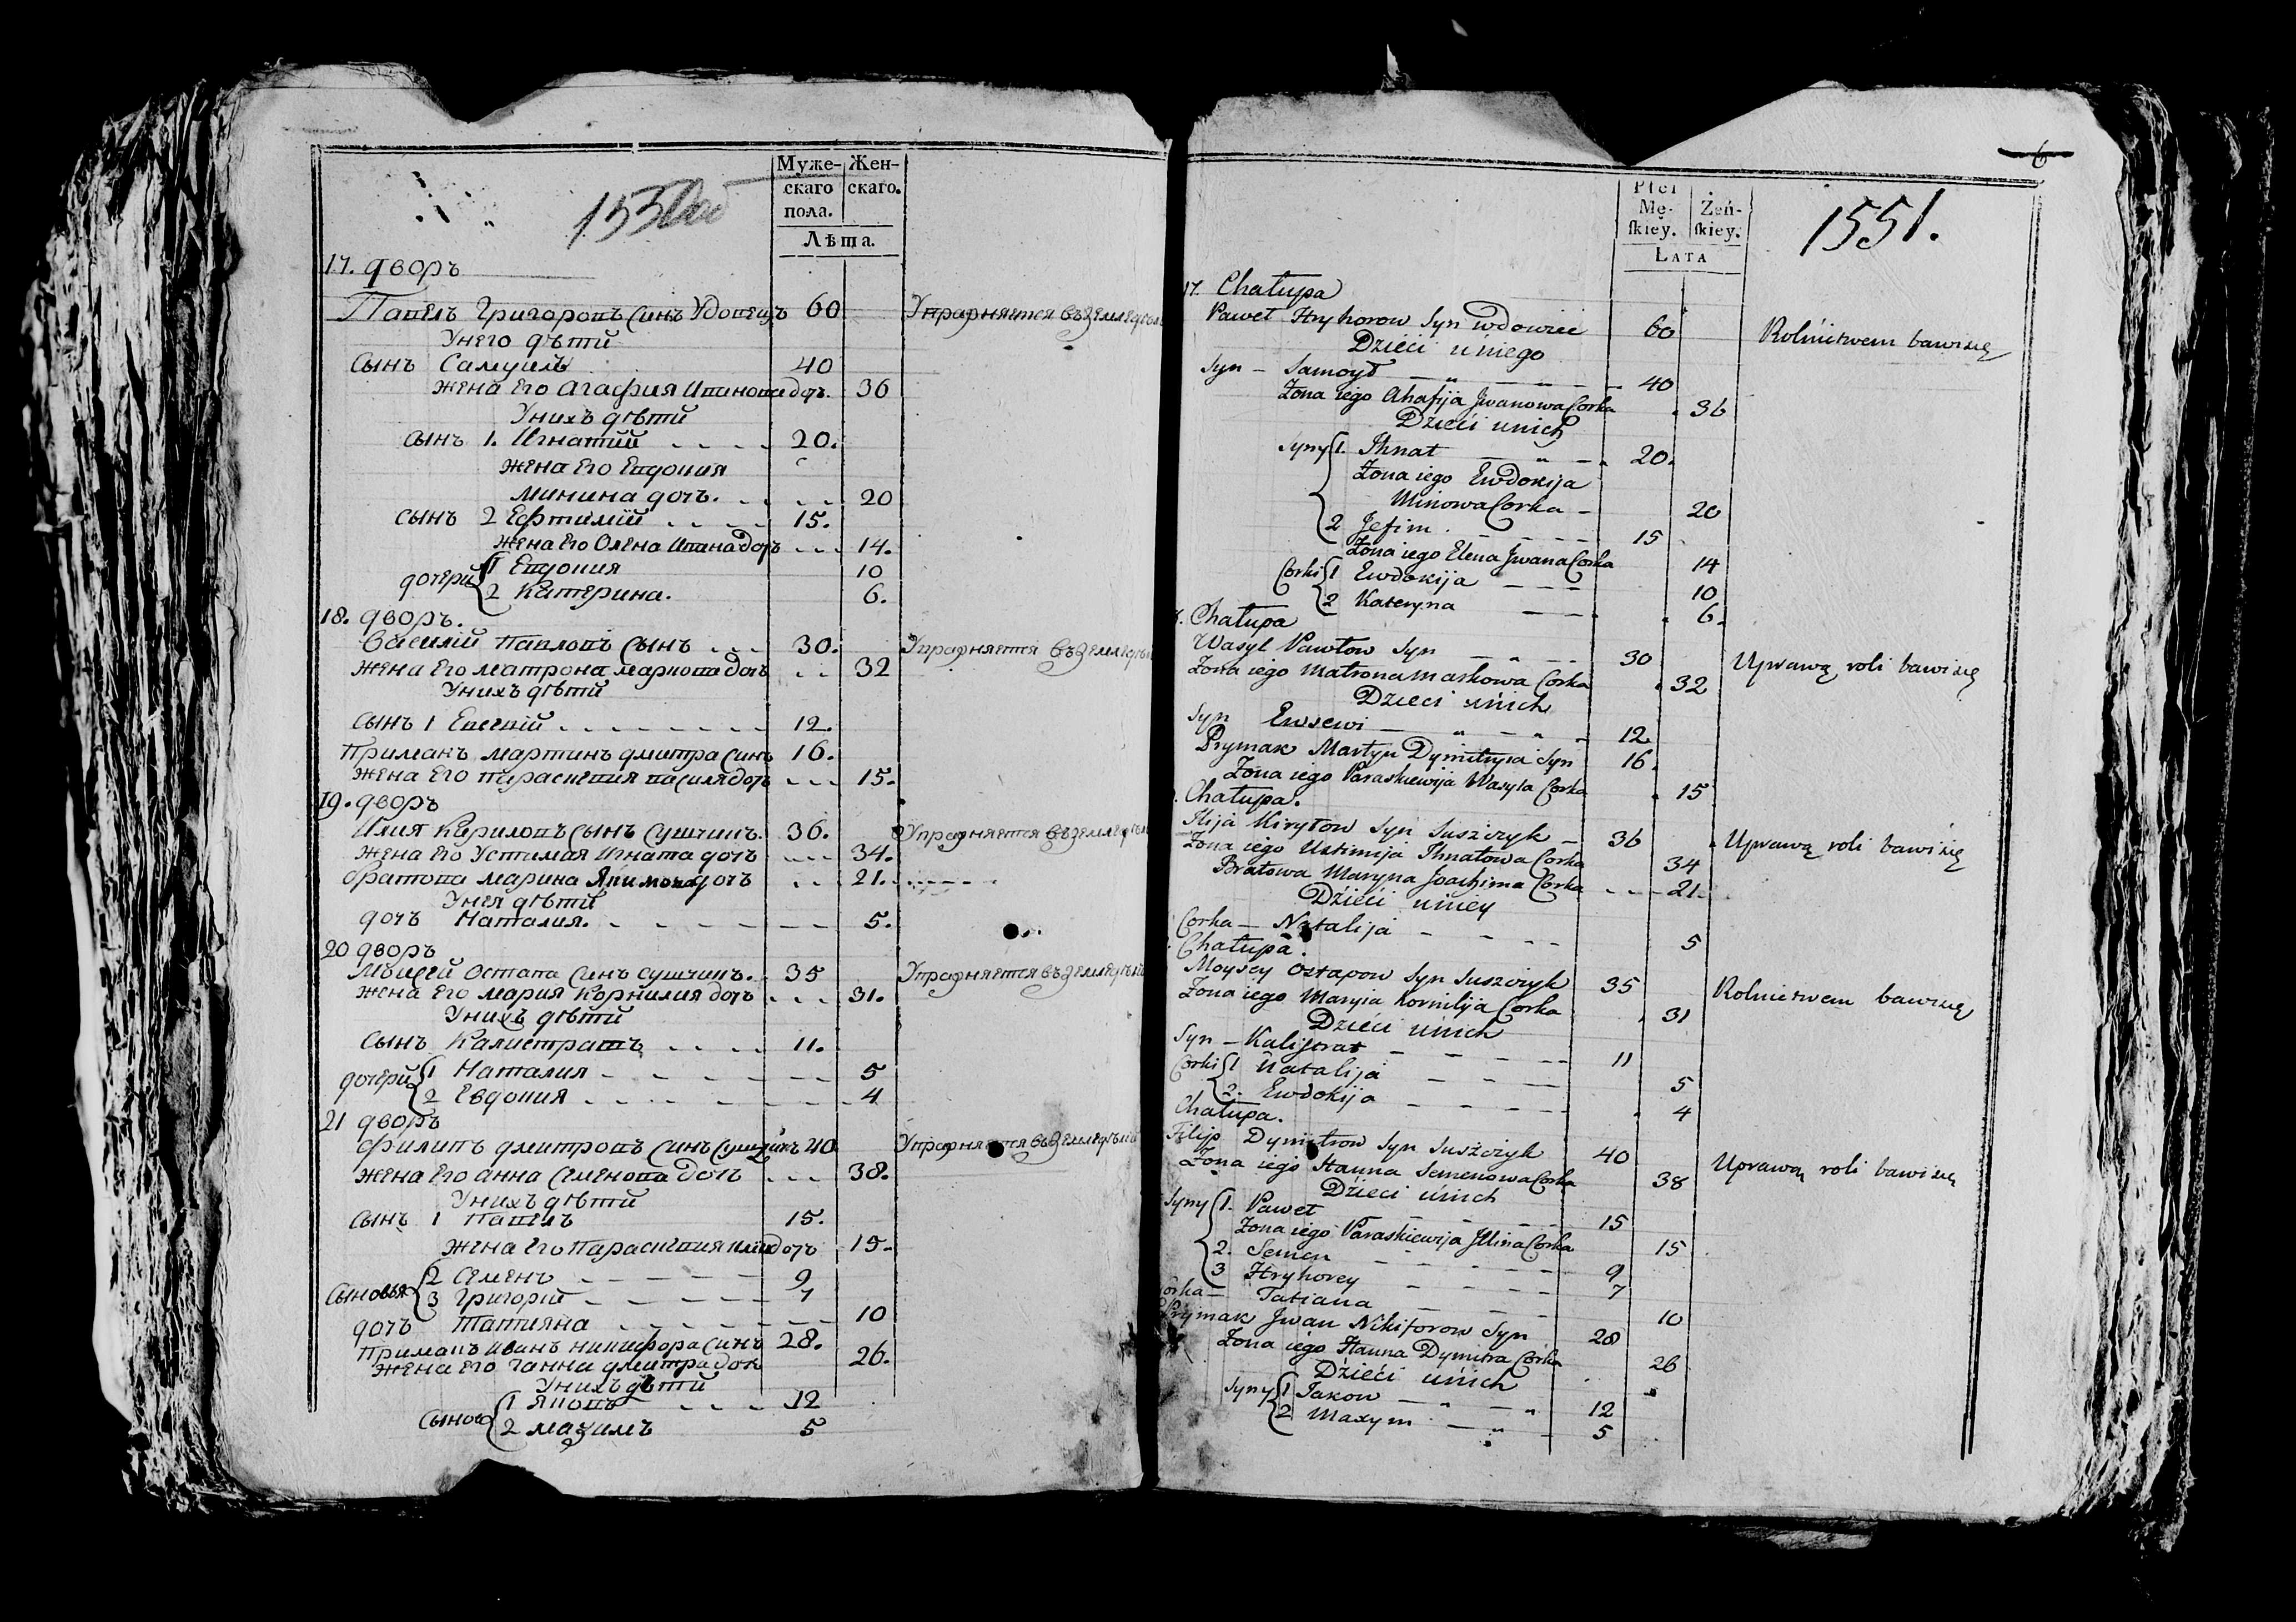 Муже-
скаго
пола.
Жен-
скаго.
Лѣта.
17. дворъ
Павелъ Григоровъ Синъ Удовецъ 60 Упражняется въ земледѣль
Унего дѣти
Сынъ Самуилъ 40
жена Его Агафия Иванова доч. 36
Унихъ дѣти
сынъ 1. Игнатий 20.
жена Его Евдокия
Минина доч. 20
сынъ 2 Ефтимий 15.
жена Его Олена Ивана доч 14.
дочери 1 Евдокия 10
2 Катерина. 6.
18. дворъ.
Василий Павловъ Сынъ 30. Упражняется въ земледѣль
жена Его матрона маркова доч 32
Унихъ дѣти
сынъ 1 Евсевий 12.
Примакъ мартинъ дмитра Синъ 16.
жена Его параскевия василя доч 15.
19. дворъ
Илия Кириловъ Сынъ Сушчикъ. 36. Упражняется въ земледѣль
жена Его Устимая Игната дочъ 34.
братова марина Якимова дочъ 21.
Унея дѣти
дочъ Наталия. 5.
20 дворъ
Мойсей Остапа Синъ сушчикъ. 35 Упражняется въ земледѣль
жена Его мария Корнилия дочъ 31.
Унихъ дѣти
сынъ Калистратъ 11.
дочери 1 Наталия 5
2 Евдокия 4
21 дворъ
Филипъ дмитровъ Синъ Сушчикъ 40 Упражняется въ земледѣль
жена Его Анна Семенова дочъ 38.
Унихъ дѣти
сынъ 1 Павелъ 15.
жена Его Параскевия Илии дочъ 15.
Сыновья 2 Семенъ 9
3 Григорий 7
дочъ Татияна 10
Примакъ иванъ никифора Синъ 28.
жена Его ганна дмитра доч 26.
Унихъ дѣти
Сынов 1 Яковъ 12
2 Мазимъ 5
6
Płci
Mę-
skiey.
Żeń-
skiey.
LATA
1551.
17. Chałupa
Paweł Hryhorow Syn wdowiec 60 Rolnictwem bawi się
Dzieci u niego
Syn – Samoył 40
Żona iego Ahafija Jwanowa Corka 36
Dzieci u nich
Syny 1. Ihnat 20.
Żona iego Ewdokija
Minowa Corka – 20
2 Jefim 15
Żona iego Elena Jwana Corka 14
Corki 1 Ewdokija 10
2 Kateryna 6.
Chałupa
Wasyl Pawłow Syn 30 Uprawą roli bawi się
Żona iego Matrona Markowa Corka 32
Dzieci u nich
Syn Ewsewi 12
Prymak Martyn Dymitryia Syn 16.
Żona iego Paraskiewija Wasyla Corka 15
Chałupa.
Ilija Kiryłow Syn Suszczyk – 36 Uprawą roli bawi się
Żona iego Ustimija Ihnatowa Corka 34
Bratowa Maryna Joachima Corka 21.
Dzieci u niey
Corka – Natalija 5
Chałupa.
Moysey Ostapow Syn Suszczyk 35 Rolnictwem bawi się
Żona iego Maryia Kornilija Corka 31
Dzieci u nich
Syn – Kalistrat 11
Corki 1 Natalija 5
2. Ewdokija 4
Chałupa.
Filip Dymitrow Syn Suszczyk 40 Uprawą roli bawi się
Żona iego Hanna Semenowa Corka 38
Dzieci u nich
Syny 1. Paweł 15
Żona iego Paraskiewija Jllina Corka 15
2. Semen 9
3 Hryhorey 7
Corka – Tatiana 10
Prymak Jwan Nikiforow Syn 28
Żona iego Hanna Dymitra Corka 26
Dzieci u nich
Syny 1 Jakow 12
2 Maxym 5